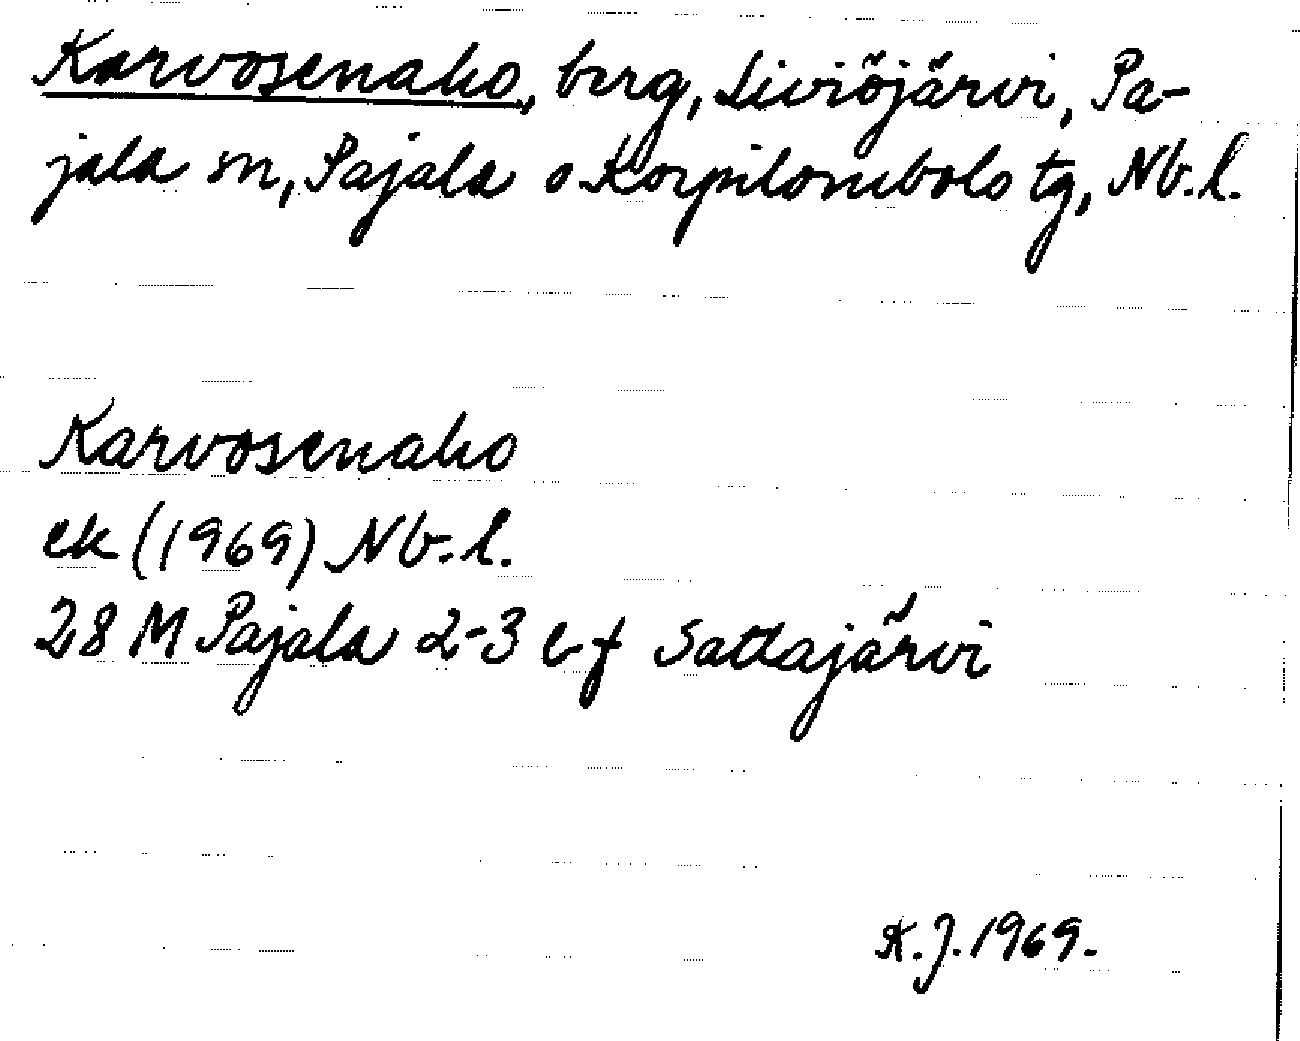 Karvosenaho, berg, Liviöjärvi, Pa-
jala sn, Pajala o Korpilombolo tg, Nb. l.
Karvosenaho
ek (1969) Nb. l.
28 M Pajala 2-3 e-f Sattajärvi
K. J. 1969.